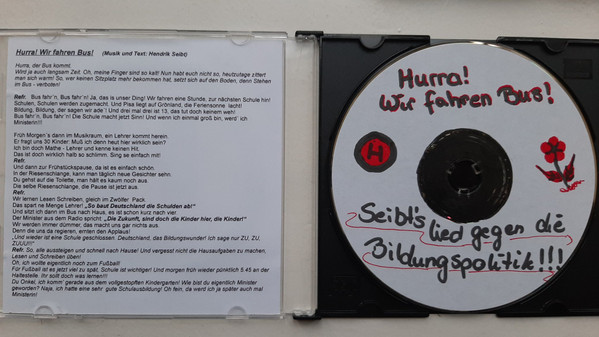 Hurra! Wir fahren Bus! (Musik und Text: Hendrik Seibt)
Hurra, der Bus kommt.
Wird ja auch langsam Zeit. Oh, meine Finger sind so kalt! Nun habt euch nicht so, heutzutage zittert
man sich warm! So, wer keinen Sitzplatz mehr bekommen hat, setzt sich auf den Boden, denn Stehen
im Bus - verboten!
Refr. Bus fahr'n, Bus fahr'n! Ja, das is unser Ding! Wir fahren eine Stunde, zur nächsten Schule hin!
Schulen, Schulen werden zugemacht. Und Pisa liegt auf Grönland, die Feriensonne lacht!
Bildung, Bildung, der sagen wir ade'! Und drei mal drei ist 13, das tut doch keinem weh!
Bus fahr'n, Bus fahr'n! Die Schule macht jetzt Sinn! Und wenn ich einmal groß bin, werd' ich
Ministerin!!!
Früh Morgen's dann im Musikraum, ein Lehrer kommt herein.
Er fragt uns 30 Kinder: Muß ich denn heut hier wirklich sein?
Ich bin doch Mathe - Lehrer und kenne keinen Hit.
Das ist doch wirklich halb so schlimm. Sing se einfach mit!
Refr.
Und dann zur Frühstückspause, da ist es einfach schön.
In der Riesenschlange, kann man täglich neue Gesichter sehn.
Du gehst auf die Toilette, man hält es kaum noch aus.
Die selbe Riesenschlange, die Pause ist jetzt aus.
Refr.
Wir lernen Lesen Schreiben, gleich im Zwölfer Pack.
Das spart ne Menge Lehrer! "So baut Deutschland die Schulden ab!"
Und sitzt ich dann im Bus nach Haus, es ist schon kurz nach vier.
Der Minister aus dem Radio spricht: "Die Zukunft, sind doch die Kinder hier, die Kinder!"
Wir werden immer dümmer, das macht uns gar nichts aus.
Denn die uns da regieren, ernten den Applaus!
"Und wieder ist eine Schule geschlossen. Deutschland, das Bildungswunder! Ich sage nur ZU, ZU,
ZUUU!!!"
Refr. So, alle aussteigen und schnell nach Hause! Und vergesst nicht die Hausaufgaben zu machen,
Lesen und Schreiben üben!
Oh, ich wollte eigentlich noch zum Fußball!
Für Fußball ist es jetzt viel zu spät, Schule ist wichtiger! Und morgen früh wieder pünktlich 5.45 an der
Haltestelle. Ihr sollt doch was lernen!!!
Du Onkel, ich komm' gerade aus dem vollgestopften Kindergarten! Wie bist du eigentlich Minister
geworden? Naja, ich hatte eine sehr' gute Schulausbildung! Oh fein, da werd ich ja später auch mal
Ministerin!
Hurra!
Wir fahren Bus!
H
Seibt's
lied gegen die
Bildungspolitik!!!